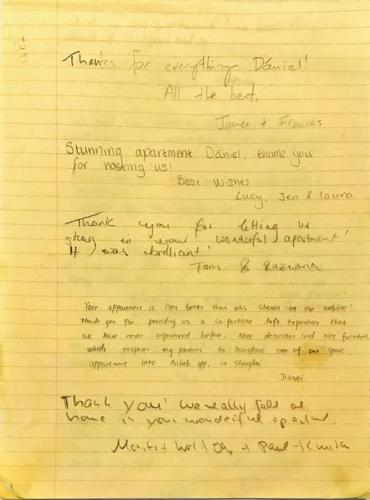 Thanks for everything Daniel!
All the best,
James + Frances
Stunning apartment Daniel, thank you
for hosting us!
Best Wishes
Lucy, Jen & Laura
Thank you for letting us
stay in your wonderful apartment!
It was brilliant!
Tom &
Your appartment is even better than was shown on the website!
Thank you for providing us a loft experience that
we have never experienced before. Nice decoration and nice furniture
which inspires my parents to transform one of our spare
appartment into Airbnb app. in Shanghai
Thank you! We really felt at
home in your wonderful apartment.
+ Paul +